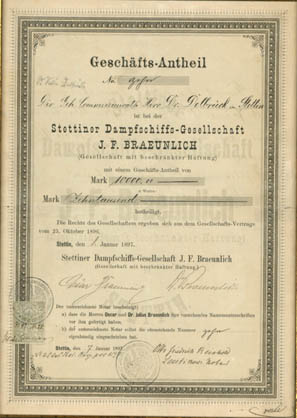 Geschäfts-Antheil
No zehn
Dr. Delbrück in Stettin
ist bei der
Stettiner Dampfschiffs-Gesellschaft
J. F. BRAEUNLICH
(Gesellschaft mit beschränkter Haftung)
mit einem Geschäfts-Antheil von
Mark 10000
Mark Zehntausend
betheiligt.
Die Rechte des Gesellschafters ergeben sich aus dem Gesellschafts-Vertrage
vom 23. Oktober 1896.
Stettin, den 1. Januar 1897.
Stettiner Dampfschiffs-Gesellschaft J. F. Braeunlich
(Gesellschaft mit beschränkter Haftung)
Der unterzeichnete Notar bescheinigt:
a) dass die Herren Oscar und Dr. Julius Braeunlich ihre vorstehenden Namensunterschriften
vor ihm gefertigt haben;
b) dass unterzeichneter Notar selbst die obenstehende Nummer zehn
eigenhändig eingeschrieben hat.
Stettin, den 7. Januar 1897.